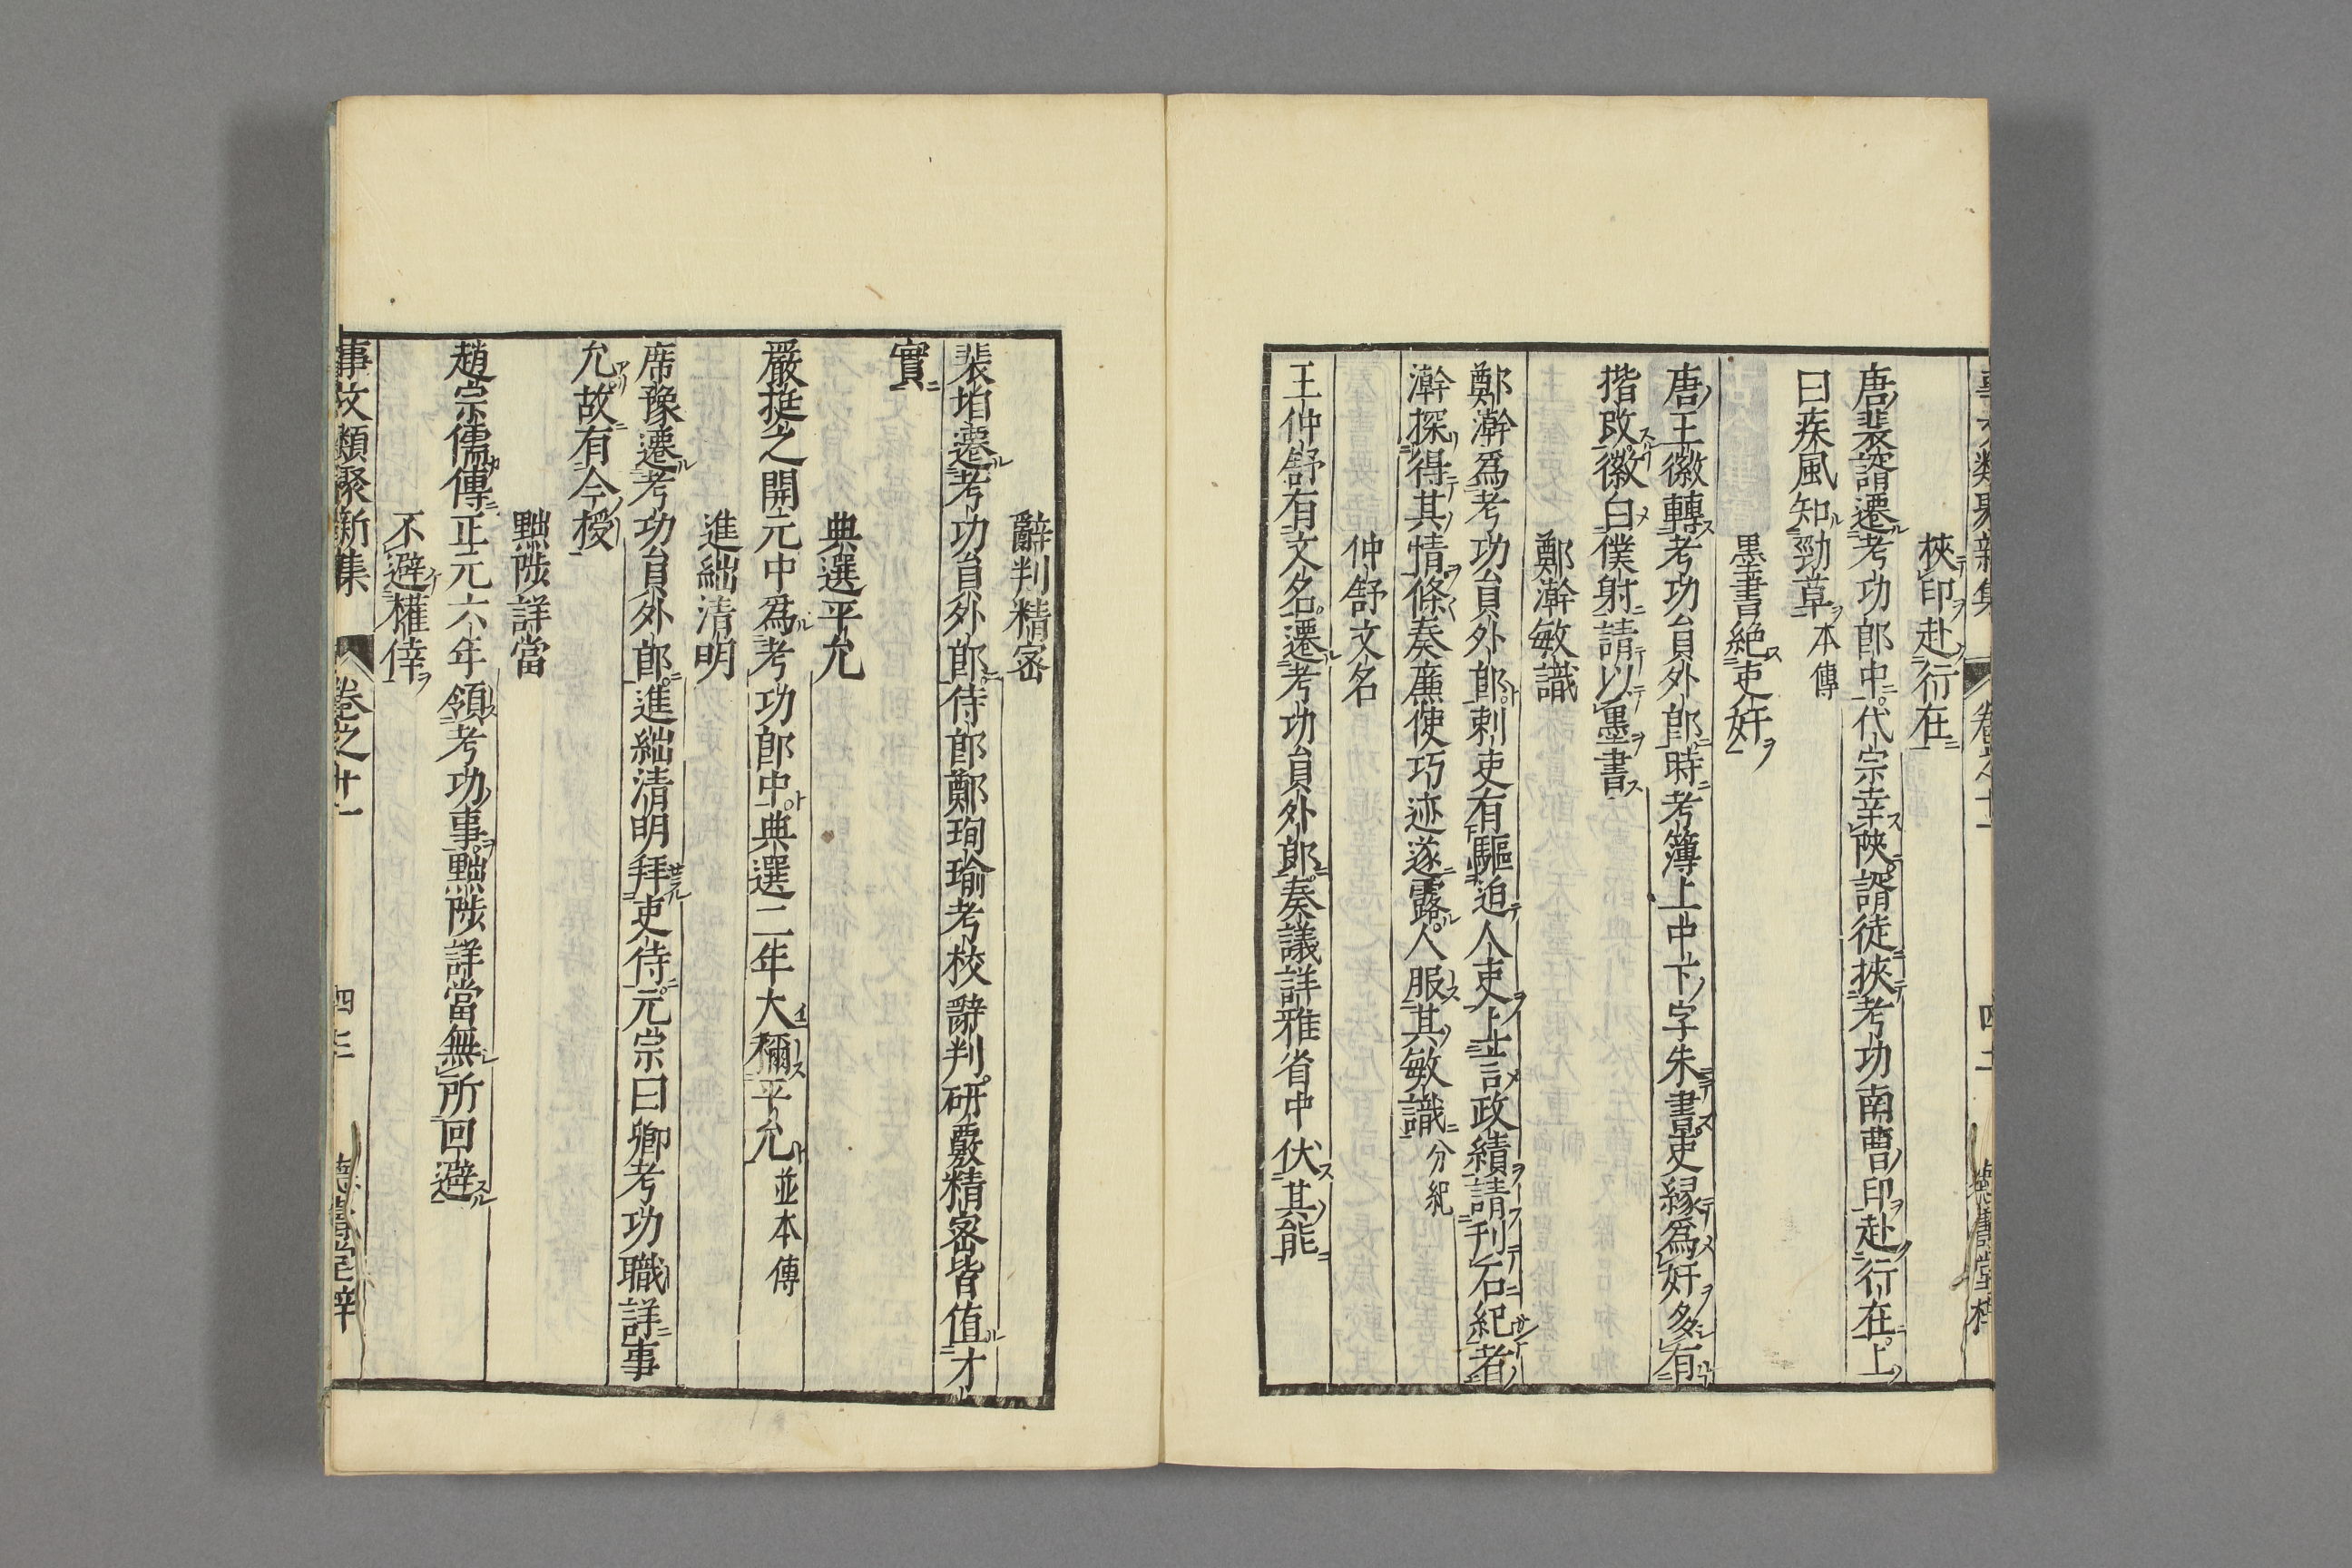 挾印赴行在
唐裴諝遷考功郎中代宗幸陜諝徒挾考功南曹印赴行在上
曰疾風知勁草本傳
墨書絶吏奸
唐王徽轉考功員外郎時考簿上中下字朱書吏緣爲奸多有
揩改徽白僕射請以墨書
鄭澣敏識
鄭澣爲考功員外郎刺吏有驅迫人吏上言政績請刊石紀者
澣探得其情條奏廉使巧迹遂露人服其敏識分紀
仲舒文名
王仲舒有文名遷考功員外郎奏議詳雅省中伏其能
辭判精密
裴垍遷考功員外郎侍郎鄭珣瑜考校辭判研覈精密皆值才
實
典選平允
嚴挺之開元中爲考功郎中典選二年大稱平允並本傳
進絀清明
席豫遷考功員外郎進絀清明拜吏侍元宗曰卿考功職詳事
允故有今授
黜陟詳當
趙宗儒傳正元六年領考功事黜陟詳當無所回避
不避權倖
事文類聚新集 卷之十一 四十三